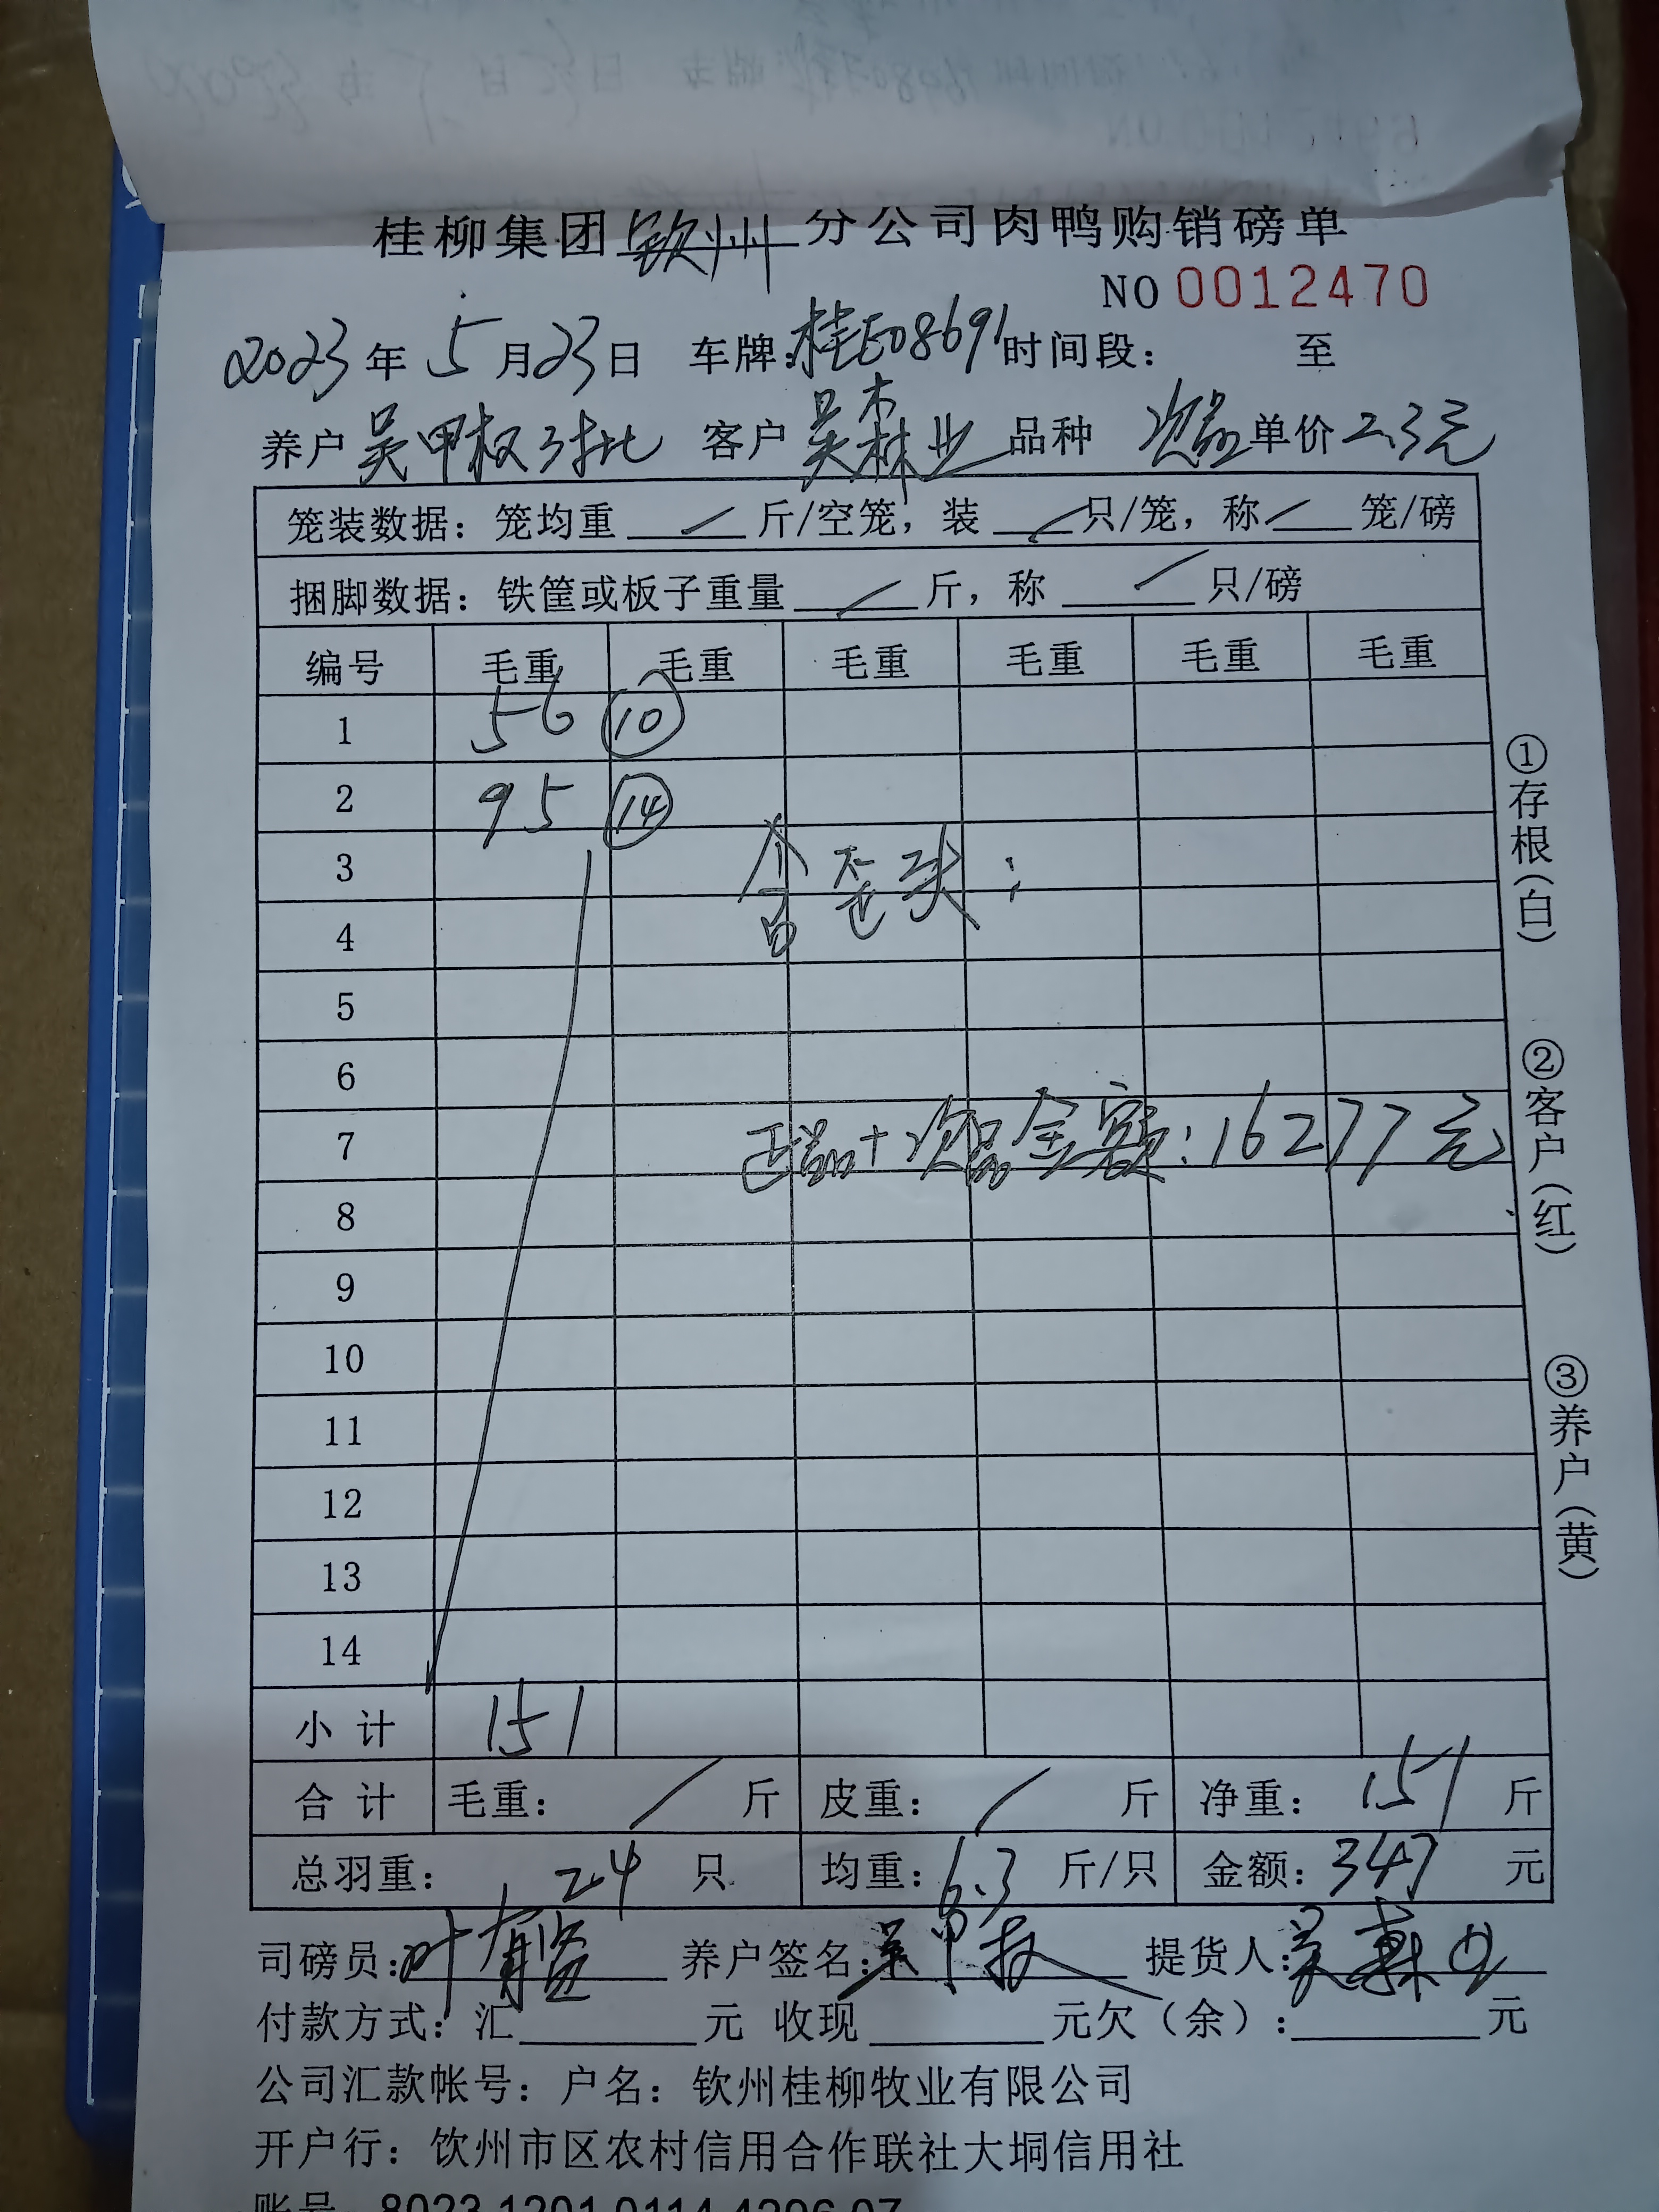 桂柳集团钦州分公司肉鸭购销磅单
NO 0012470
2023年5月23日 车牌:桂E08691 时间段: 至
养户 吴甲权3批 客户 吴森业 品种 次品 单价 2.3元
笼装数据: 笼均重 / 斤/空笼, 装 / 只/笼, 称 / 笼/磅
捆脚数据: 铁筐或板子重量 / 斤, 称 / 只/磅
编号 毛重 毛重 毛重 毛重 毛重 毛重
1 56 ⑩
2 95 ⑭
3 含歪头:
4
5
6
7 正品+次品金额:16277元
8
9
10
11
12
13
14
小计 151
合计 毛重: / 斤 皮重: / 斤 净重: 151 斤
总羽重: 24 只 均重: 6.3 斤/只 金额: 347 元
司磅员: 叶 养户签名: 吴甲权 提货人: 吴森业
付款方式: 汇 元 收现 元欠(余): 元
公司汇款帐号: 户名: 钦州桂柳牧业有限公司
开户行: 钦州市区农村信用合作联社大垌信用社
账号: 8023 1201 0114 4296 07
①存根(白)
②客户(红)
③养户(黄)